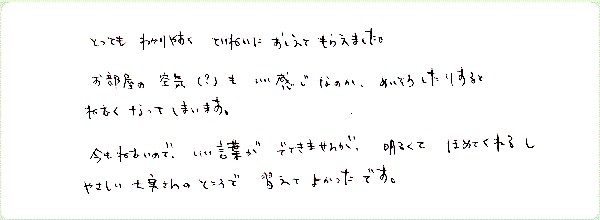 とっても わかりやすく ていねいに おしえて もらえました。
お部屋の 空気(?)も いい感じなのか、めいそうしたりすると
ねむくなってしまいます。
今もねむいので、いい言葉が でてきませんが、明るくて ほめてくれるし
やさしい 先生さんのところで 習えてよかったです。